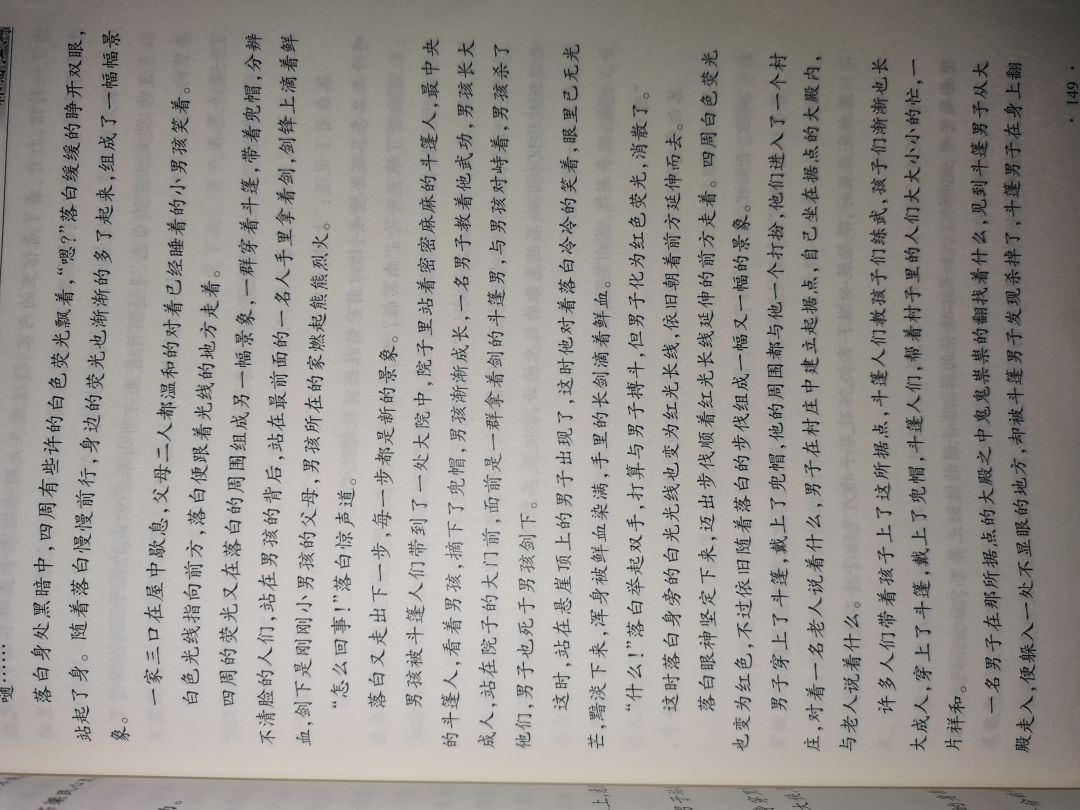 嗵……
落白身处黑暗中，四周有些许的白色荧光飘着，“嗯？”落白缓缓的睁开双眼，
站起了身。随着落白慢慢前行，身边的荧光也渐渐的多了起来，组成了一幅幅景
象。
一家三口在屋中歇息，父母二人都温和的对着已经睡着的小男孩笑着。
白色光线指向前方，落白便跟着光线的地方走着。
四周的荧光又在落白的周围组成另一幅景象，一群穿着斗篷，带着兜帽，分辨
不清脸的人们，站在男孩的背后，站在最前面的一名人手里拿着剑，剑锋上滴着鲜
血，剑下是刚刚小男孩的父母，男孩所在的家燃起熊熊烈火。
“怎么回事！”落白惊声道。
落白又走出下一步，每一步都是新的景象。
男孩被斗篷人们带到了一处大院中，院子里站着密密麻麻的斗篷人，最中央
的斗篷人，看着男孩，摘下了兜帽，男孩渐渐成长，一名男子教着他武功，男孩长大
成人，站在院子的大门前，面前是一群拿着剑的斗篷男，与男孩对峙着，男孩杀了
他们，男子也死于男孩剑下。
这时，站在悬崖顶上的男子出现了，这时他对着落白冷冷的笑着，眼里已无光
芒，黯淡下来，浑身被鲜血染满，手里的长剑滴着鲜血。
“什么！”落白举起双手，打算与男子搏斗，但男子化为红色荧光，消散了。
这时落白身旁的白光光线也变为红光长线，依旧朝着前方延伸而去。
落白眼神坚定下来，迈出步伐顺着红光长线延伸的前方走着。四周白色荧光
也变为红色，不过依旧随着落白的步伐组成一幅又一幅的景象。
男子穿上了斗篷，戴上了兜帽，他的周围都与他一个打扮，他们进入了一个村
庄，对着一名老人说着什么，男子在村庄中建立起据点，自己坐在据点的大殿内，
与老人说着什么。
许多人们带着孩子上了这所据点，斗篷人们教孩子们练武，孩子们渐渐也长
大成人，穿上了斗篷，戴上了兜帽，斗篷人们，帮着村子里的人们大大小小的忙，一
片祥和。
一名男子在那所据点的大殿之中鬼鬼祟祟的翻找着什么，见到斗篷男子从大
殿走入，便躲入一处不显眼的地方，却被斗篷男子发现杀掉了，斗篷男子在身上翻
· 149 ·